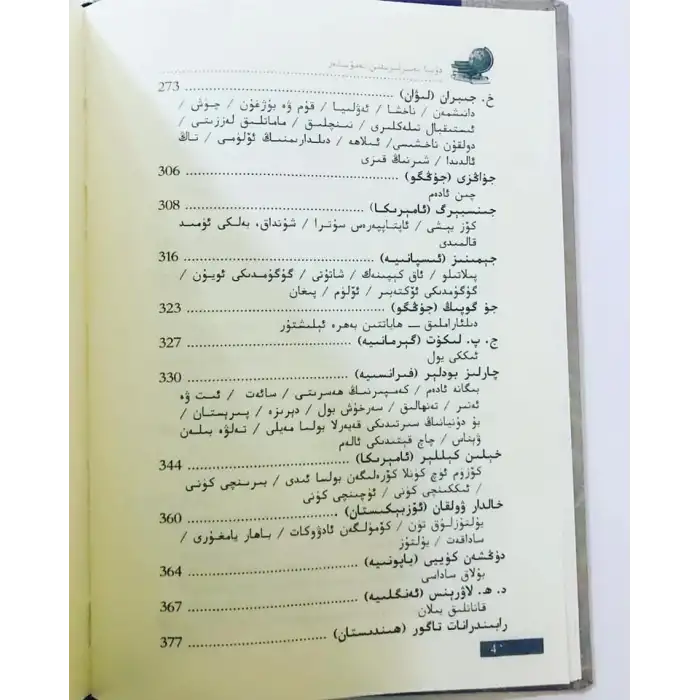 دۇنيا نەسىرلىرىدىن نەمۇنىلەر
خ. جىبران (لىۋان) 273
دانىشمەن / ناخشا / ئەۋلىيا / قۇم ۋە بۇژغۇن / چۈش /
ئىستىقبال تىلەكلىرى / تىنچلىق / ماماتلىق لەززىتى /
دولقۇن ناخشىسى/ ئىلاھە / دىلدارىمنىڭ ئۆلۈمى / تاڭ
ئالدىدا / شىرنىڭ قىزى
جۋاڭزى (جۇڭگو) 306
چىن ئادەم
جىنسىبېرگ (ئامېرىكا) 308
كۆز يېشى / ئاپتاپپەرەس سۇترا / شۇنداق، بەلكى ئۈمىد
قالمىدى
جىمىنىز (ئىسپانىيە) 316
پىلاتىلو / ئاق كېپىنەك / شاتۇتى / گۈگۈمدىكى ئويۇن /
گۈگۈمدىكى ئۆكتەبىر / ئۆلۈم / پىغان
جۇ گوپىڭ (جۇڭگو) 323
دىلئاراملىق — ھاياتتىن بەھرە ئېلىشتۇر
ج. پ. لىكۆت (گېرمانىيە) 327
ئىككى يول
چارلىز بودلېر (فىرانسىيە) 330
بىگانە ئادەم / كەمپىرنىڭ ھەسرىتى / سائەت / ئىت ۋە
ئەتىر / تەنھالىق / سەرخۇش بول / دېرىزە / پىرىستان /
بۇ دۇنيانىڭ سىرتىدىكى قەيەرلا بولسا مەيلى / تەلۋە بىلەن
ۋېناس / چاچ قېتىدىكى ئالەم
خېلىن كېللېر (ئامېرىكا) 344
كۆزۈم ئۈچ كۈنلا كۆرەلىگەن بولسا ئىدى / بىرىنچى كۈنى
/ ئىككىنچى كۈنى / ئۈچىنچى كۈنى
خالدار ۋولقان (ئۆزبېكىستان) 360
يۇلتۇزلۇق تۈن / كۆمۈلگەن ئادۋوكات / باھار يامغۇرى /
ساداقەت / يۇلتۇز
دۇڭشەن كۈيىي (ياپونىيە) 364
بۇلاق ساداسى
د. ھ. لاۋرېنس (ئەنگلىيە) 367
قاناتلىق يىلان
رابىندرانات تاگور (ھىندىستان) 377
4